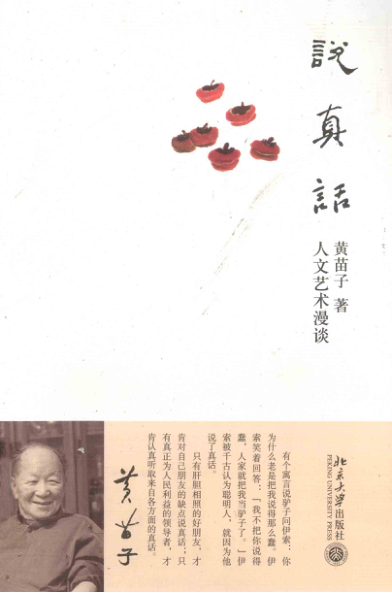 說真話
黄苗子 著
人文艺术漫谈
有个寓言说驴子问伊索：你
为什么老是把我说得那么蠢。伊
索笑着回答：“我不把你说得
蠢，人家就把我当驴子了。”伊
索被千古认为聪明人，就因为他
说了真话。
只有肝胆相照的好朋友，才
肯对自己朋友的缺点说真话；只
有真正为人民利益的领导者，才
肯认真听取来自各方面的真话。
黄苗子
北京大学出版社
PEKING UNIVERSITY PRESS